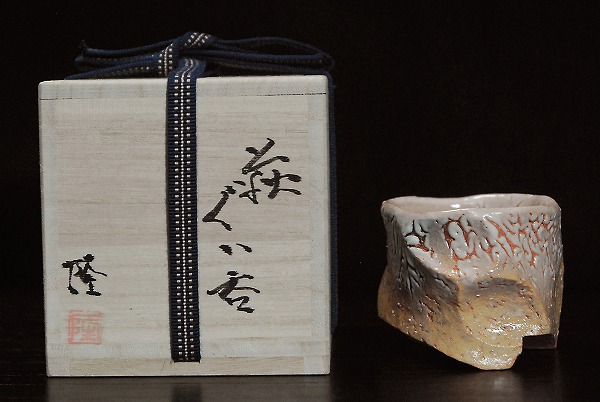 萩
ぐい呑
隆
隆